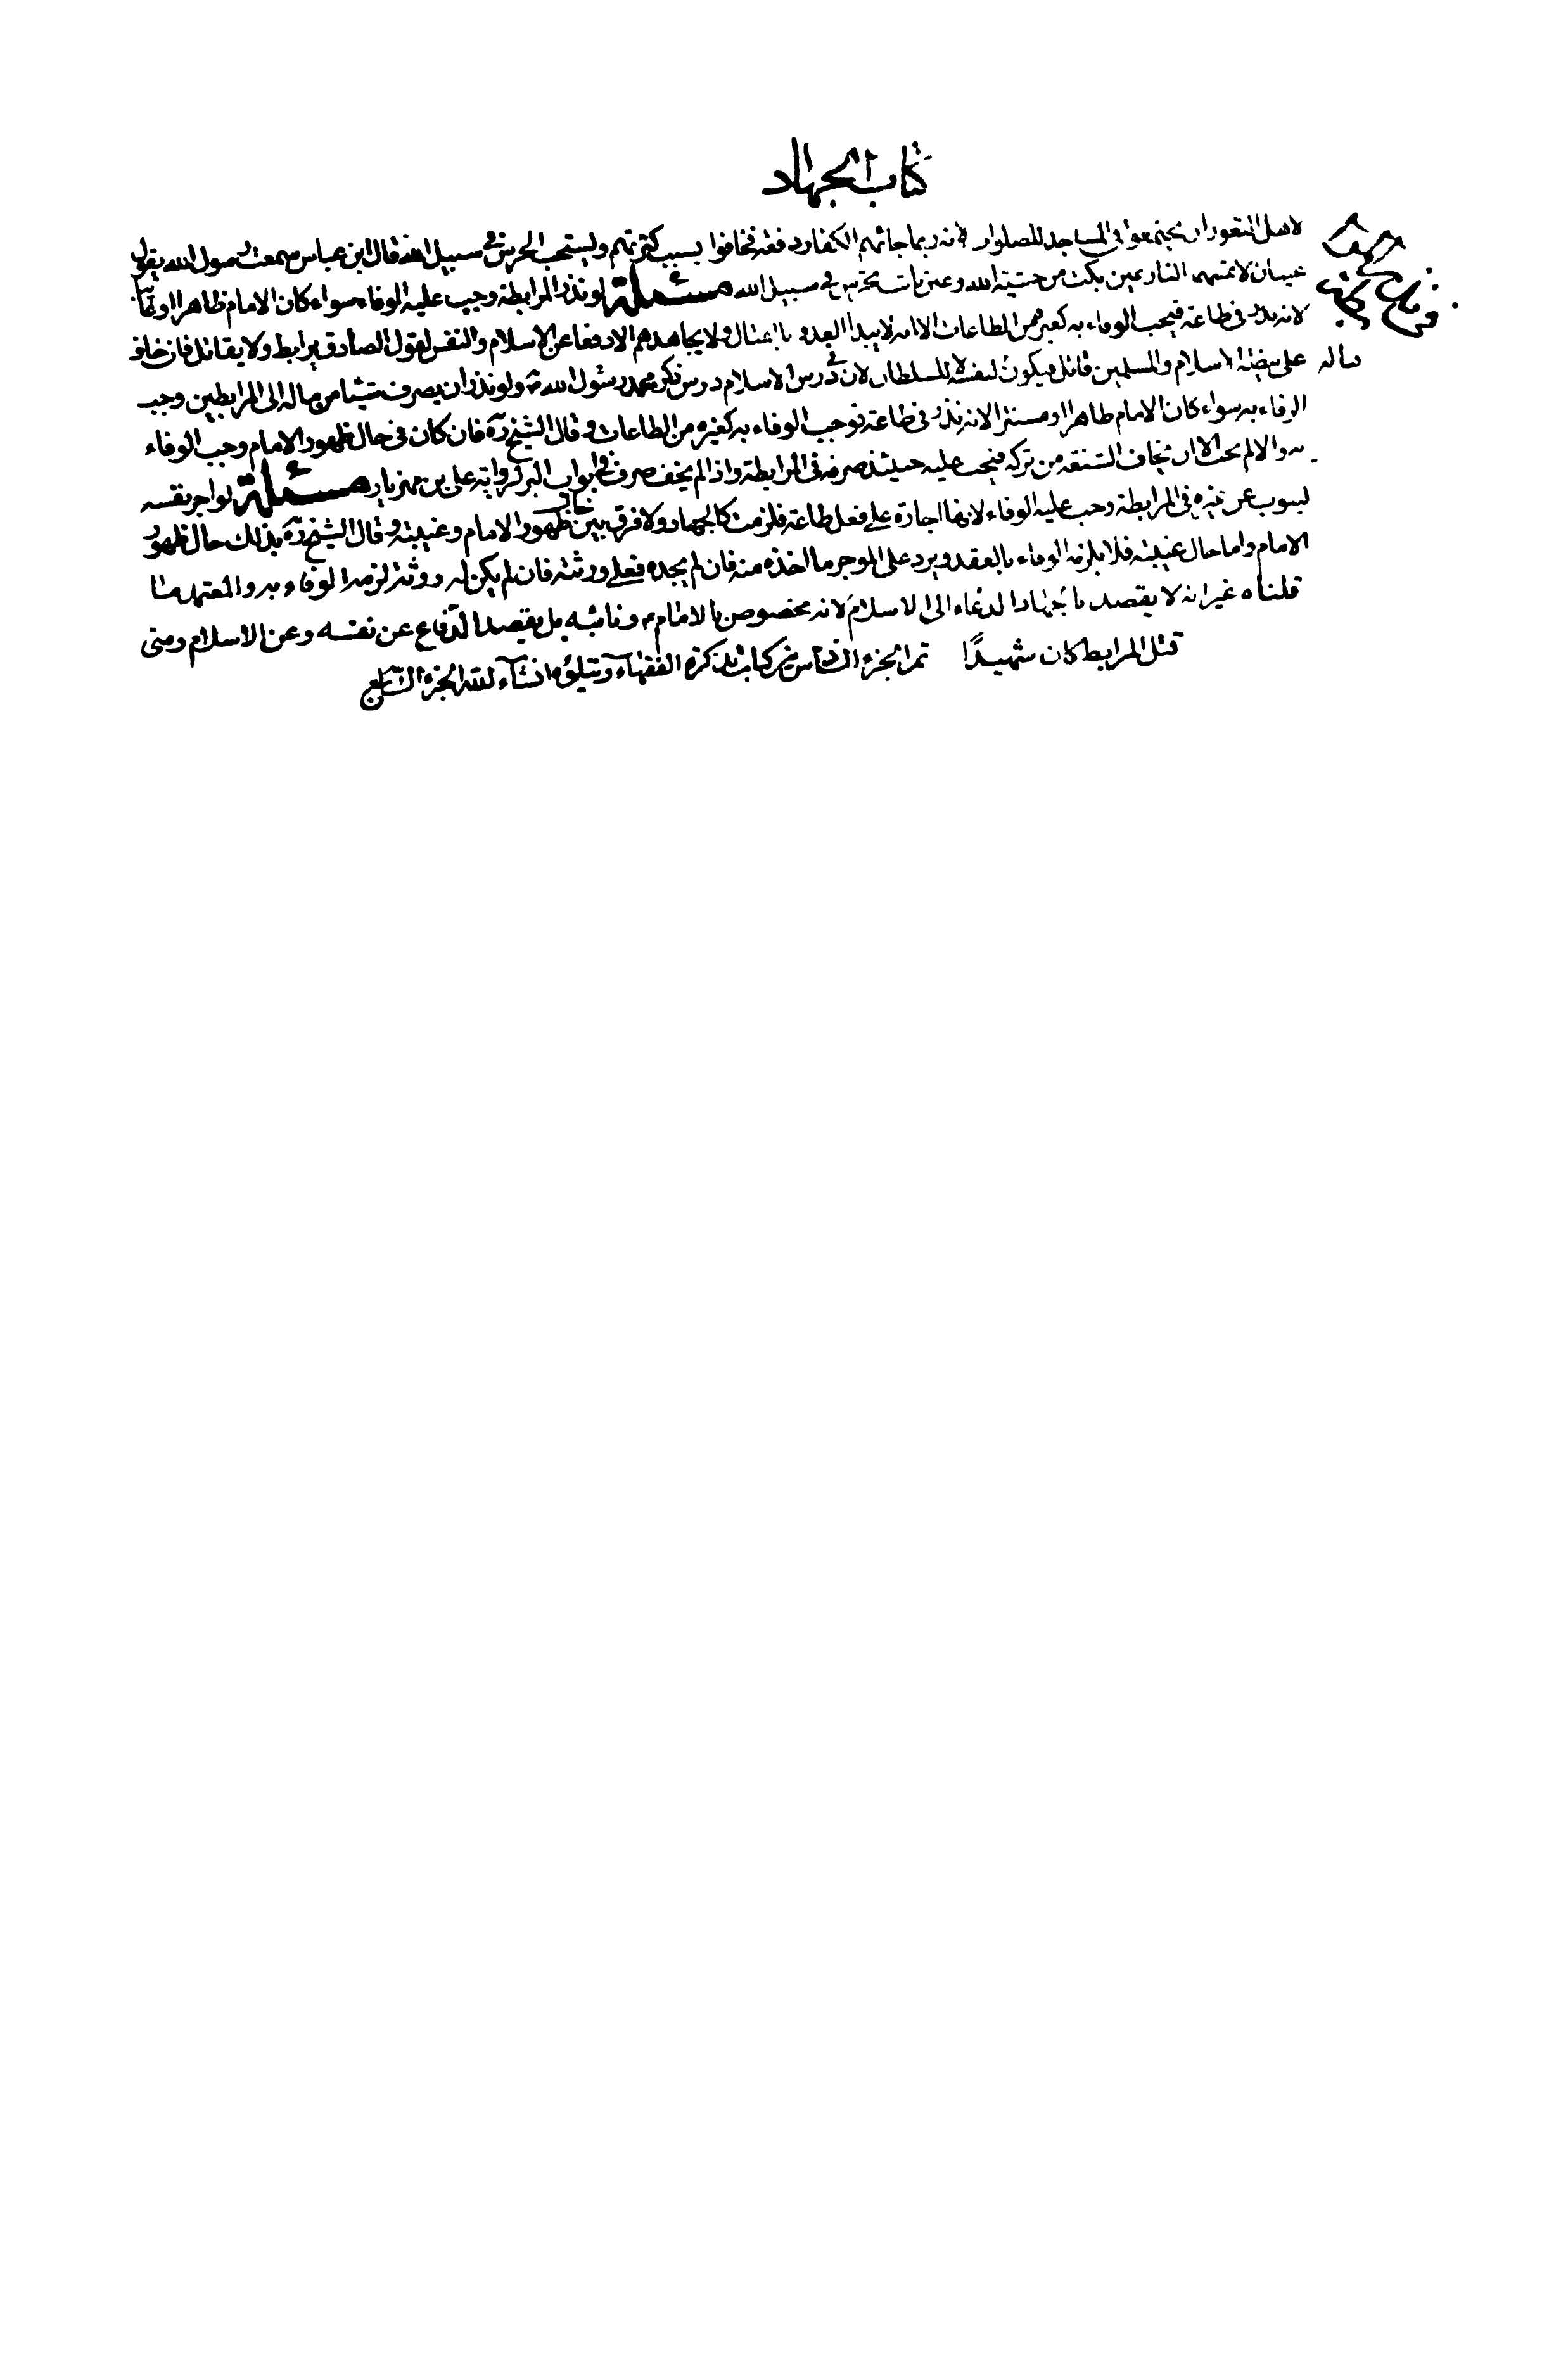 كتاب الجهاد
لاهل الثغور ان يجتمعوا فى المساجد للصلوات لانه ربما جائهم الكفار دفعة فخافوا بسبب كثرتهم ويستحب الحرس فى سبيل الله قال ابن عباس سمعت رسول الله يقول
عينان لا تمسهما النار عين بكت من خشية الله وعين باتت تحرس فى سبيل الله مسئلة لو نذر المرابطة وجب عليه الوفاء سواء كان الامام ظاهرا او غائبا
لانه نذر فى طاعة فيجب الوفاء به كغيره من الطاعات الا انه لا يبدا العدو بالقتال ولا يجاهدهم الا دفعا عن الاسلام والنفس لقول الصادق يرابط ولا يقاتل فان خاف
على بيضة الاسلام والمسلمين قاتل فيكون لنفسه لا للسلطان لان فى درس الاسلام درس ذكر محمد رسول الله ص ولو نذر ان يصرف شيئا من ماله الى المرابطين وجب
الوفاء به سواء كان الامام ظاهرا او مستترا لانه نذر فى طاعة فوجب الوفاء به كغيره من الطاعات وقال الشيخ ره فان كان فى حال ظهور الامام وجب الوفاء
به والا لم يجب الا ان يخاف الشنعة من تركه فيجب عليه حينئذ صرفه فى المرابطة واذا لم يخف صرف فى ابواب البر لرواية على بن مهزيار مسئلة لو اجر نفسه
لينوب عن غيره فى المرابطة وجب عليه الوفاء لانها اجارة على فعل طاعة فلزمت كالجهاد ولا فرق بين حالتى ظهور الامام وغيبته وقال الشيخ ره بذلك حال ظهور
الامام واما حال غيبته فلا يلزمه الوفاء بالعقد ويرد على الموجر ما اخذه منه فان لم يجده فعلى ورثته فان لم يكن له ورثة لزمه الوفاء به والمعتمد ما
قلناه غير انه لا يقصد بالجهاد الدعاء الى الاسلام لانه مخصوص بالامام ونائبه بل يقصد الدفاع عن نفسه وعن الاسلام ومتى
قتل المرابط كان شهيدًا تم الجزء السادس من كتاب تذكرة الفقهاء ويتلوه انشاء لله الجزء السابع